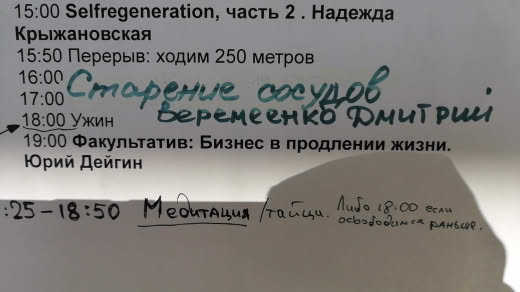 15:00 Selfregeneration, часть 2 . Надежда
Крыжановская
15:50 Перерыв: ходим 250 метров
16:00 Старение сосудов
17:00 Веремеенко Дмитрий
18:00 Ужин
19:00 Факультатив: Бизнес в продлении жизни.
Юрий Дейгин
:25-18:50 Медитация/тайцзи. Либо 18:00 если
освободимся раньше.